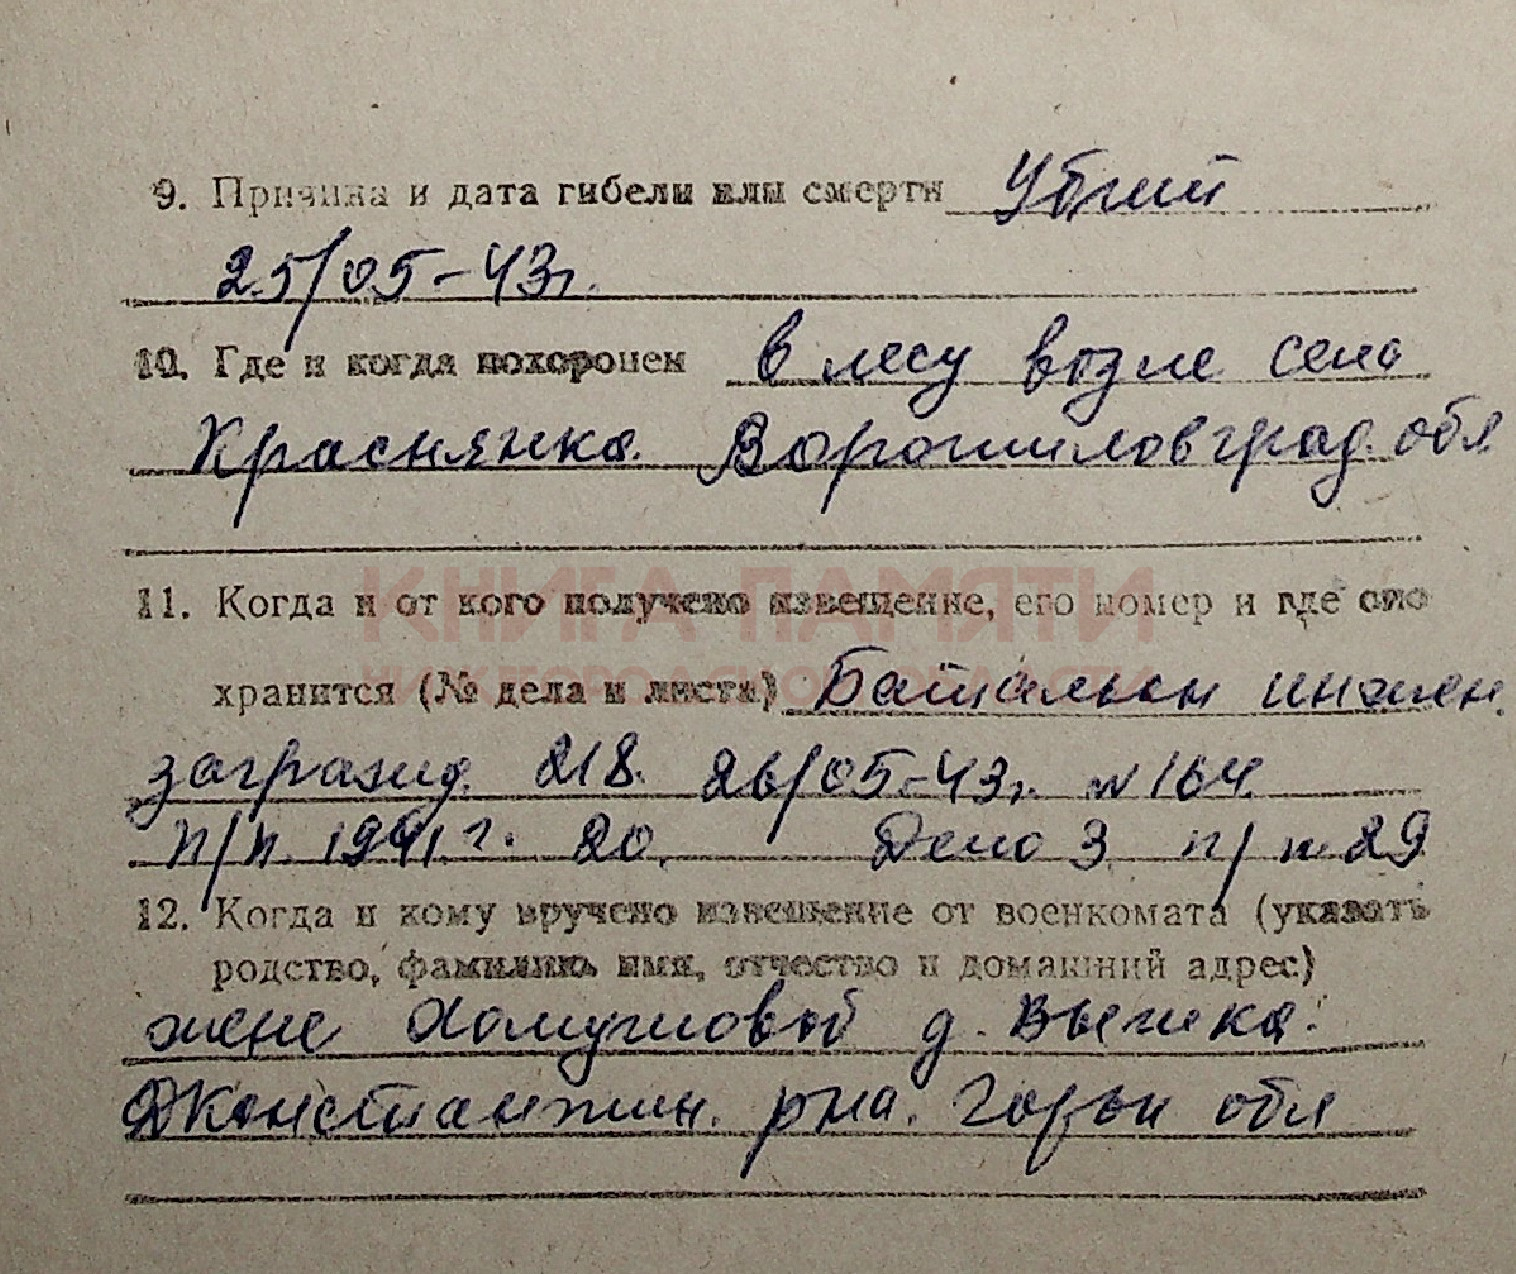 9. Причина и дата гибели или смерти Убит
25/05-43г.
10. Где и когда похоронен в лесу возле села
Краснянка. Ворошиловград. обл
11. Когда и от кого получено извещение, его номер и где оно
КНИГА ПАМЯТИ
НИЖЕГОРОДСКОЙ ОБЛАСТИ
хранится (№ дела и листа) Батальон инжен.
загражд. 218. 26/05-43г. N 164.
п/п. 1941 г. 20. Дело 3 п/п 29
12. Когда и кому вручено извещение от военкомата (указать
родство, фамилию, имя, отчество и домашний адрес)
жене Хомутовой д.
рна. Горьк обл